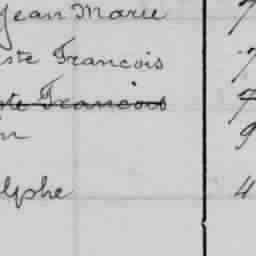 Jean Marie 7
ste Francois 7
ste Francois 7
n 9
lphe 4